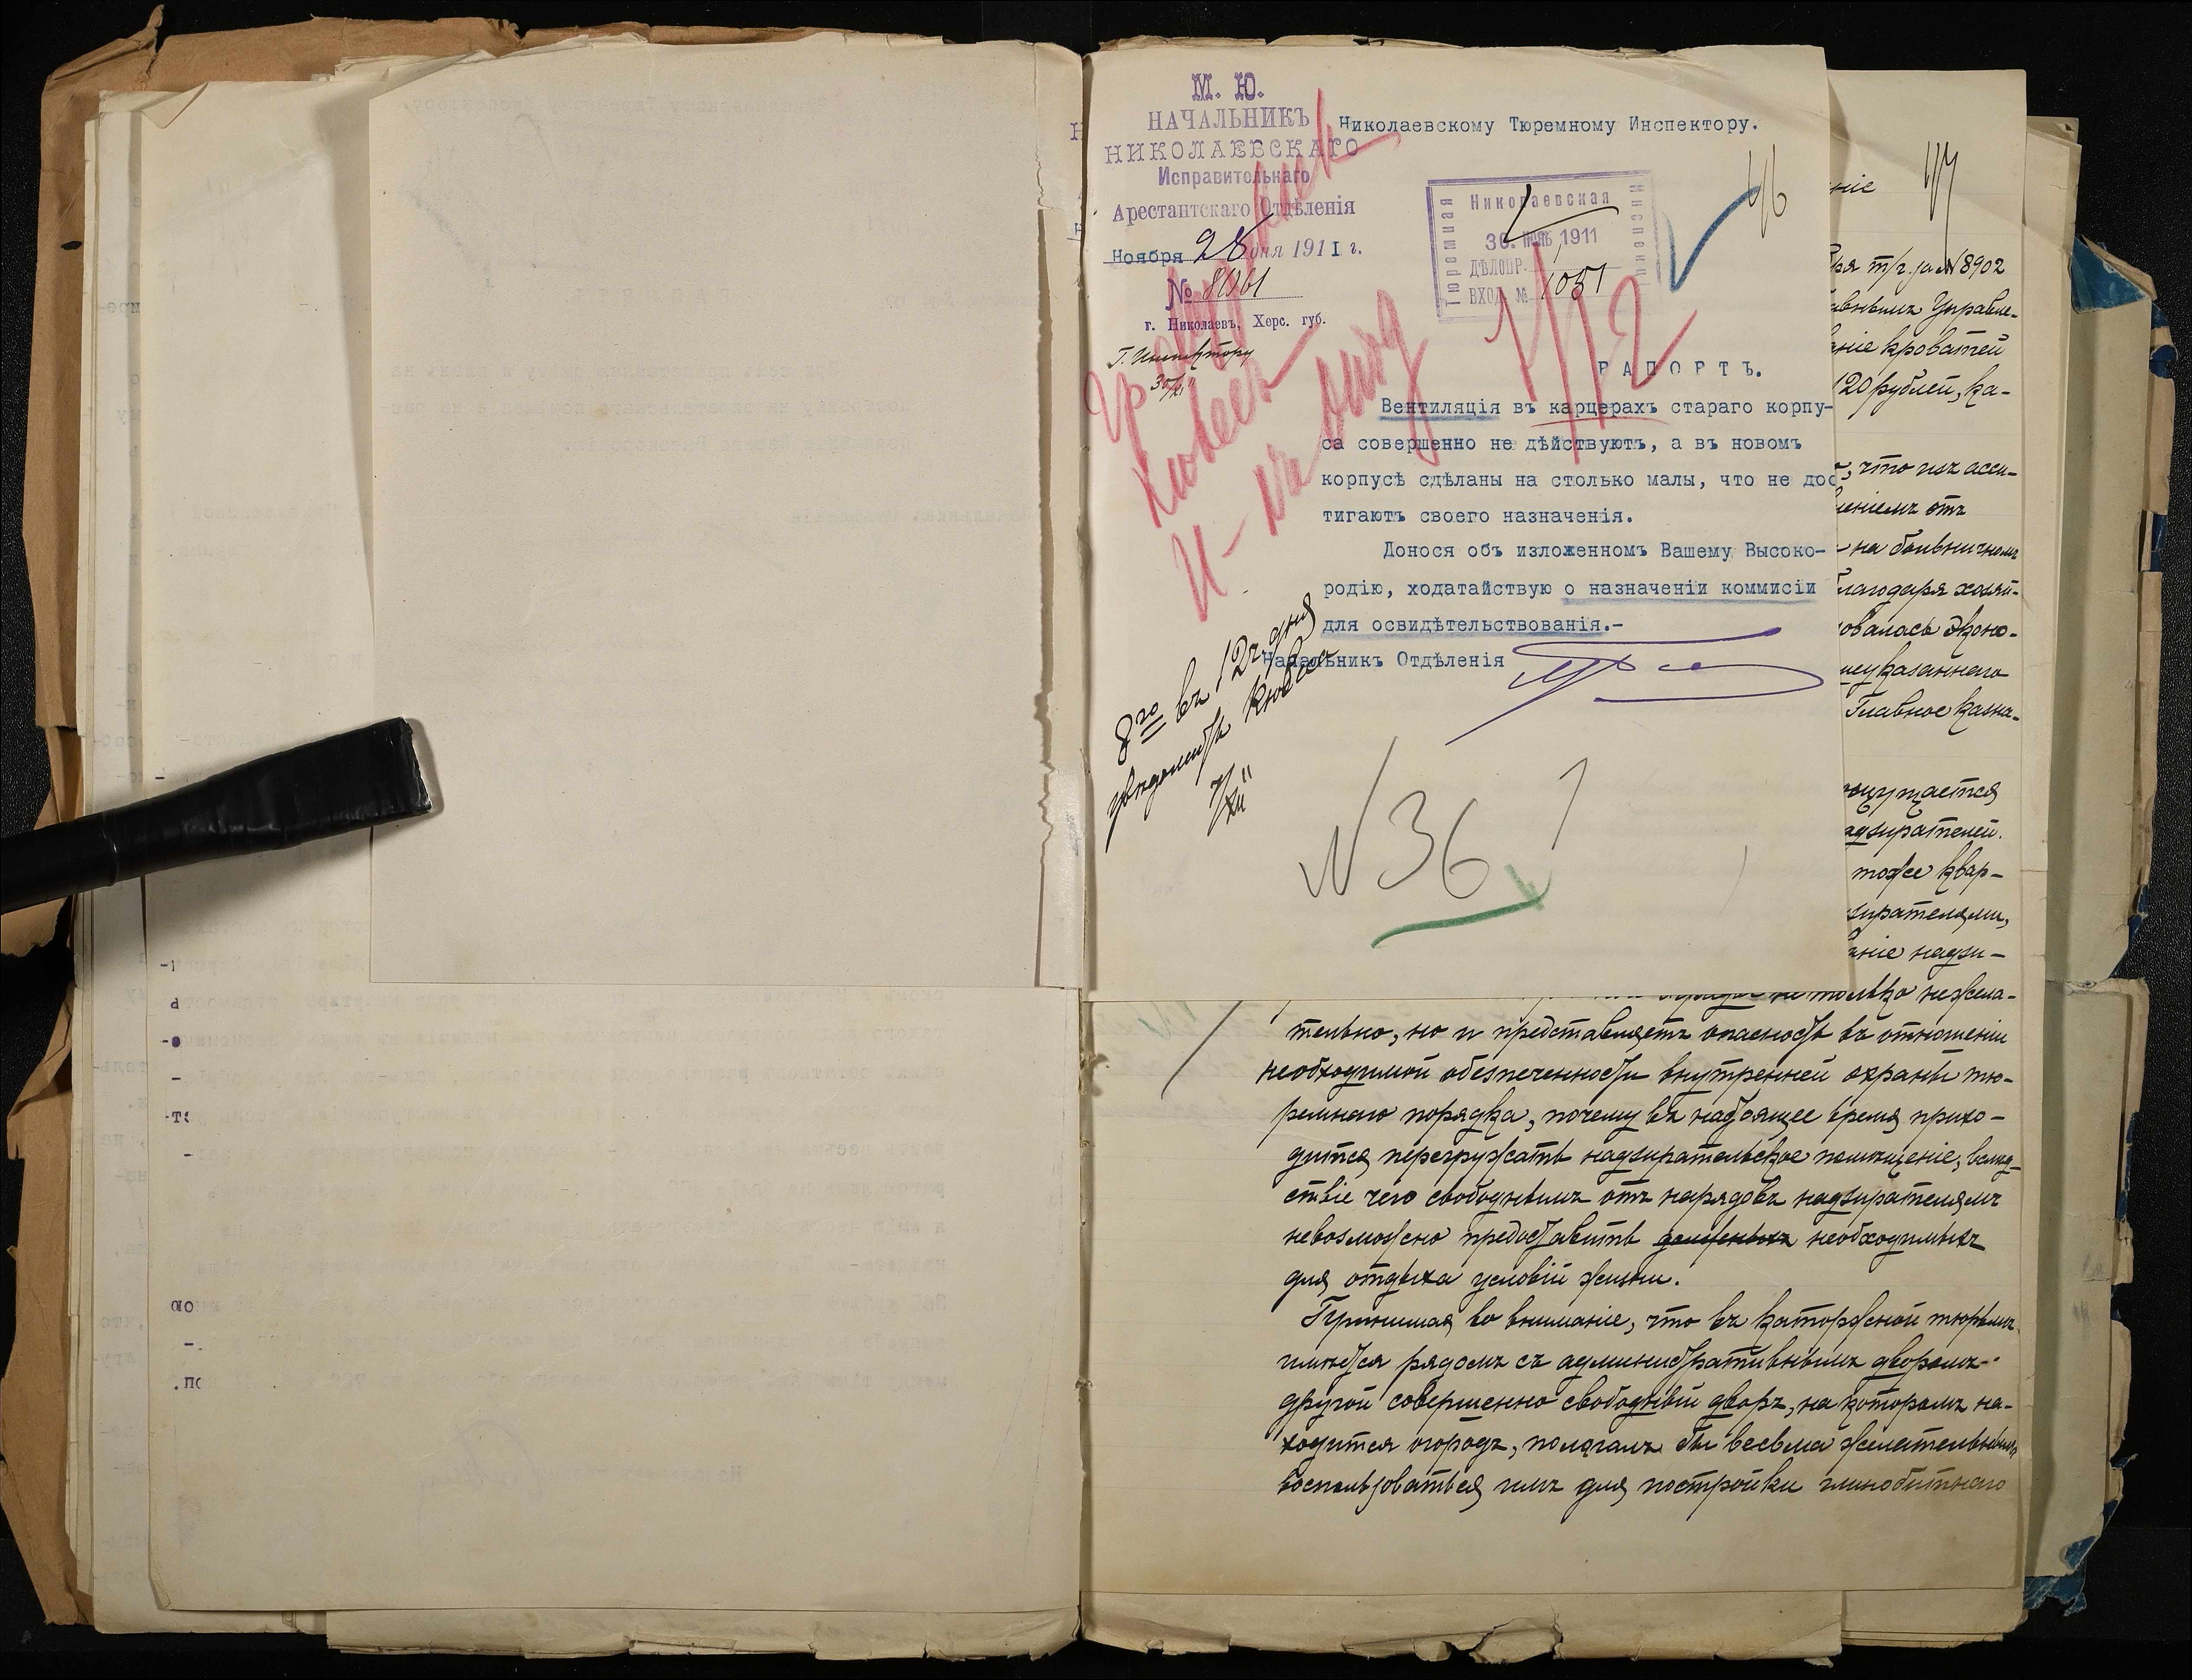 М. Ю.
НАЧАЛЬНИКЪ
НИКОЛАЕВСКАГО
Исправительнаго
Арестантскаго Отдѣленія
Ноября 28 дня 1911 г.
№
г. Николаевъ, Херс. губ.
Г. Инспектору
30/XI
Николаевскому Тюремному Инспектору.
Николаевская
Тюремная
Инспекц
30. НОЯБ 1911
ДѢЛОПР.
ВХОД. № 1051
1/12
РАПОРТЪ.
Вентиляція въ карцерахъ стараго корпу-
са совершенно не дѣйствуютъ, а въ новомъ
корпусѣ сдѣланы на столько малы, что не дос
тигаютъ своего назначенія.
Донося объ изложенномъ Вашему Высоко-
родію, ходатайствую о назначеніи коммисіи
для освидѣтельствованія.-
Начальникъ Отдѣленія
8го въ 12 ч. дня
увѣдомить
№ 36
ніе
т/г. за № 8902
Управле-
ніе кроватей
120 рублей, ка-
, что изъ асси-
леніемъ отъ
на больничномъ
благодаря хозяй-
овалась эконо-
казаннаго
Главное казна-
ощущается
адзирателей.
тоже квар-
зирателями,
аніе надзи-
не только нежела-
тельно, но и представляетъ опасность въ отношеніи
необходимой обезпеченности внутренней охраны тю-
ремнаго порядка, почему въ настоящее время прихо-
дится перегружать надзирательское помѣщеніе, вслѣд-
ствіе чего свободнымъ отъ нарядовъ надзирателямъ
невозможно предоставить необходимыхъ
для отдыха условій жизни.
Принимая во вниманіе, что въ каторжной тюрьмѣ
имѣется рядомъ съ административнымъ дворомъ
другой совершенно свободный дворъ, на которомъ на-
ходится огородъ, полагалъ бы весьма желательнымъ
воспользоваться имъ для постройки глинобитнаго